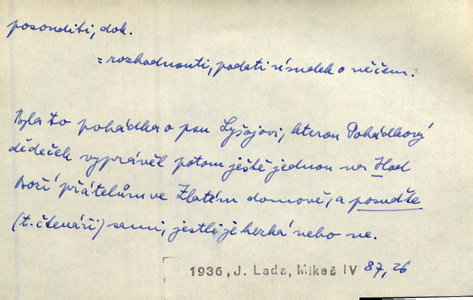 posouditi, dok.
= rozhodnouti, podati úsudek o něčem.
Byla to pohádka o psu Lyšajovi, kterou Pohádkový
dědeček vyprávěl potom ještě jednou na Hod
Boží přátelům ve Zlatém domově, a posuďte
(t. čtenáři) sami, jestli je hezká nebo ne.
1936, J. Lada, Mikeš IV 87, 26